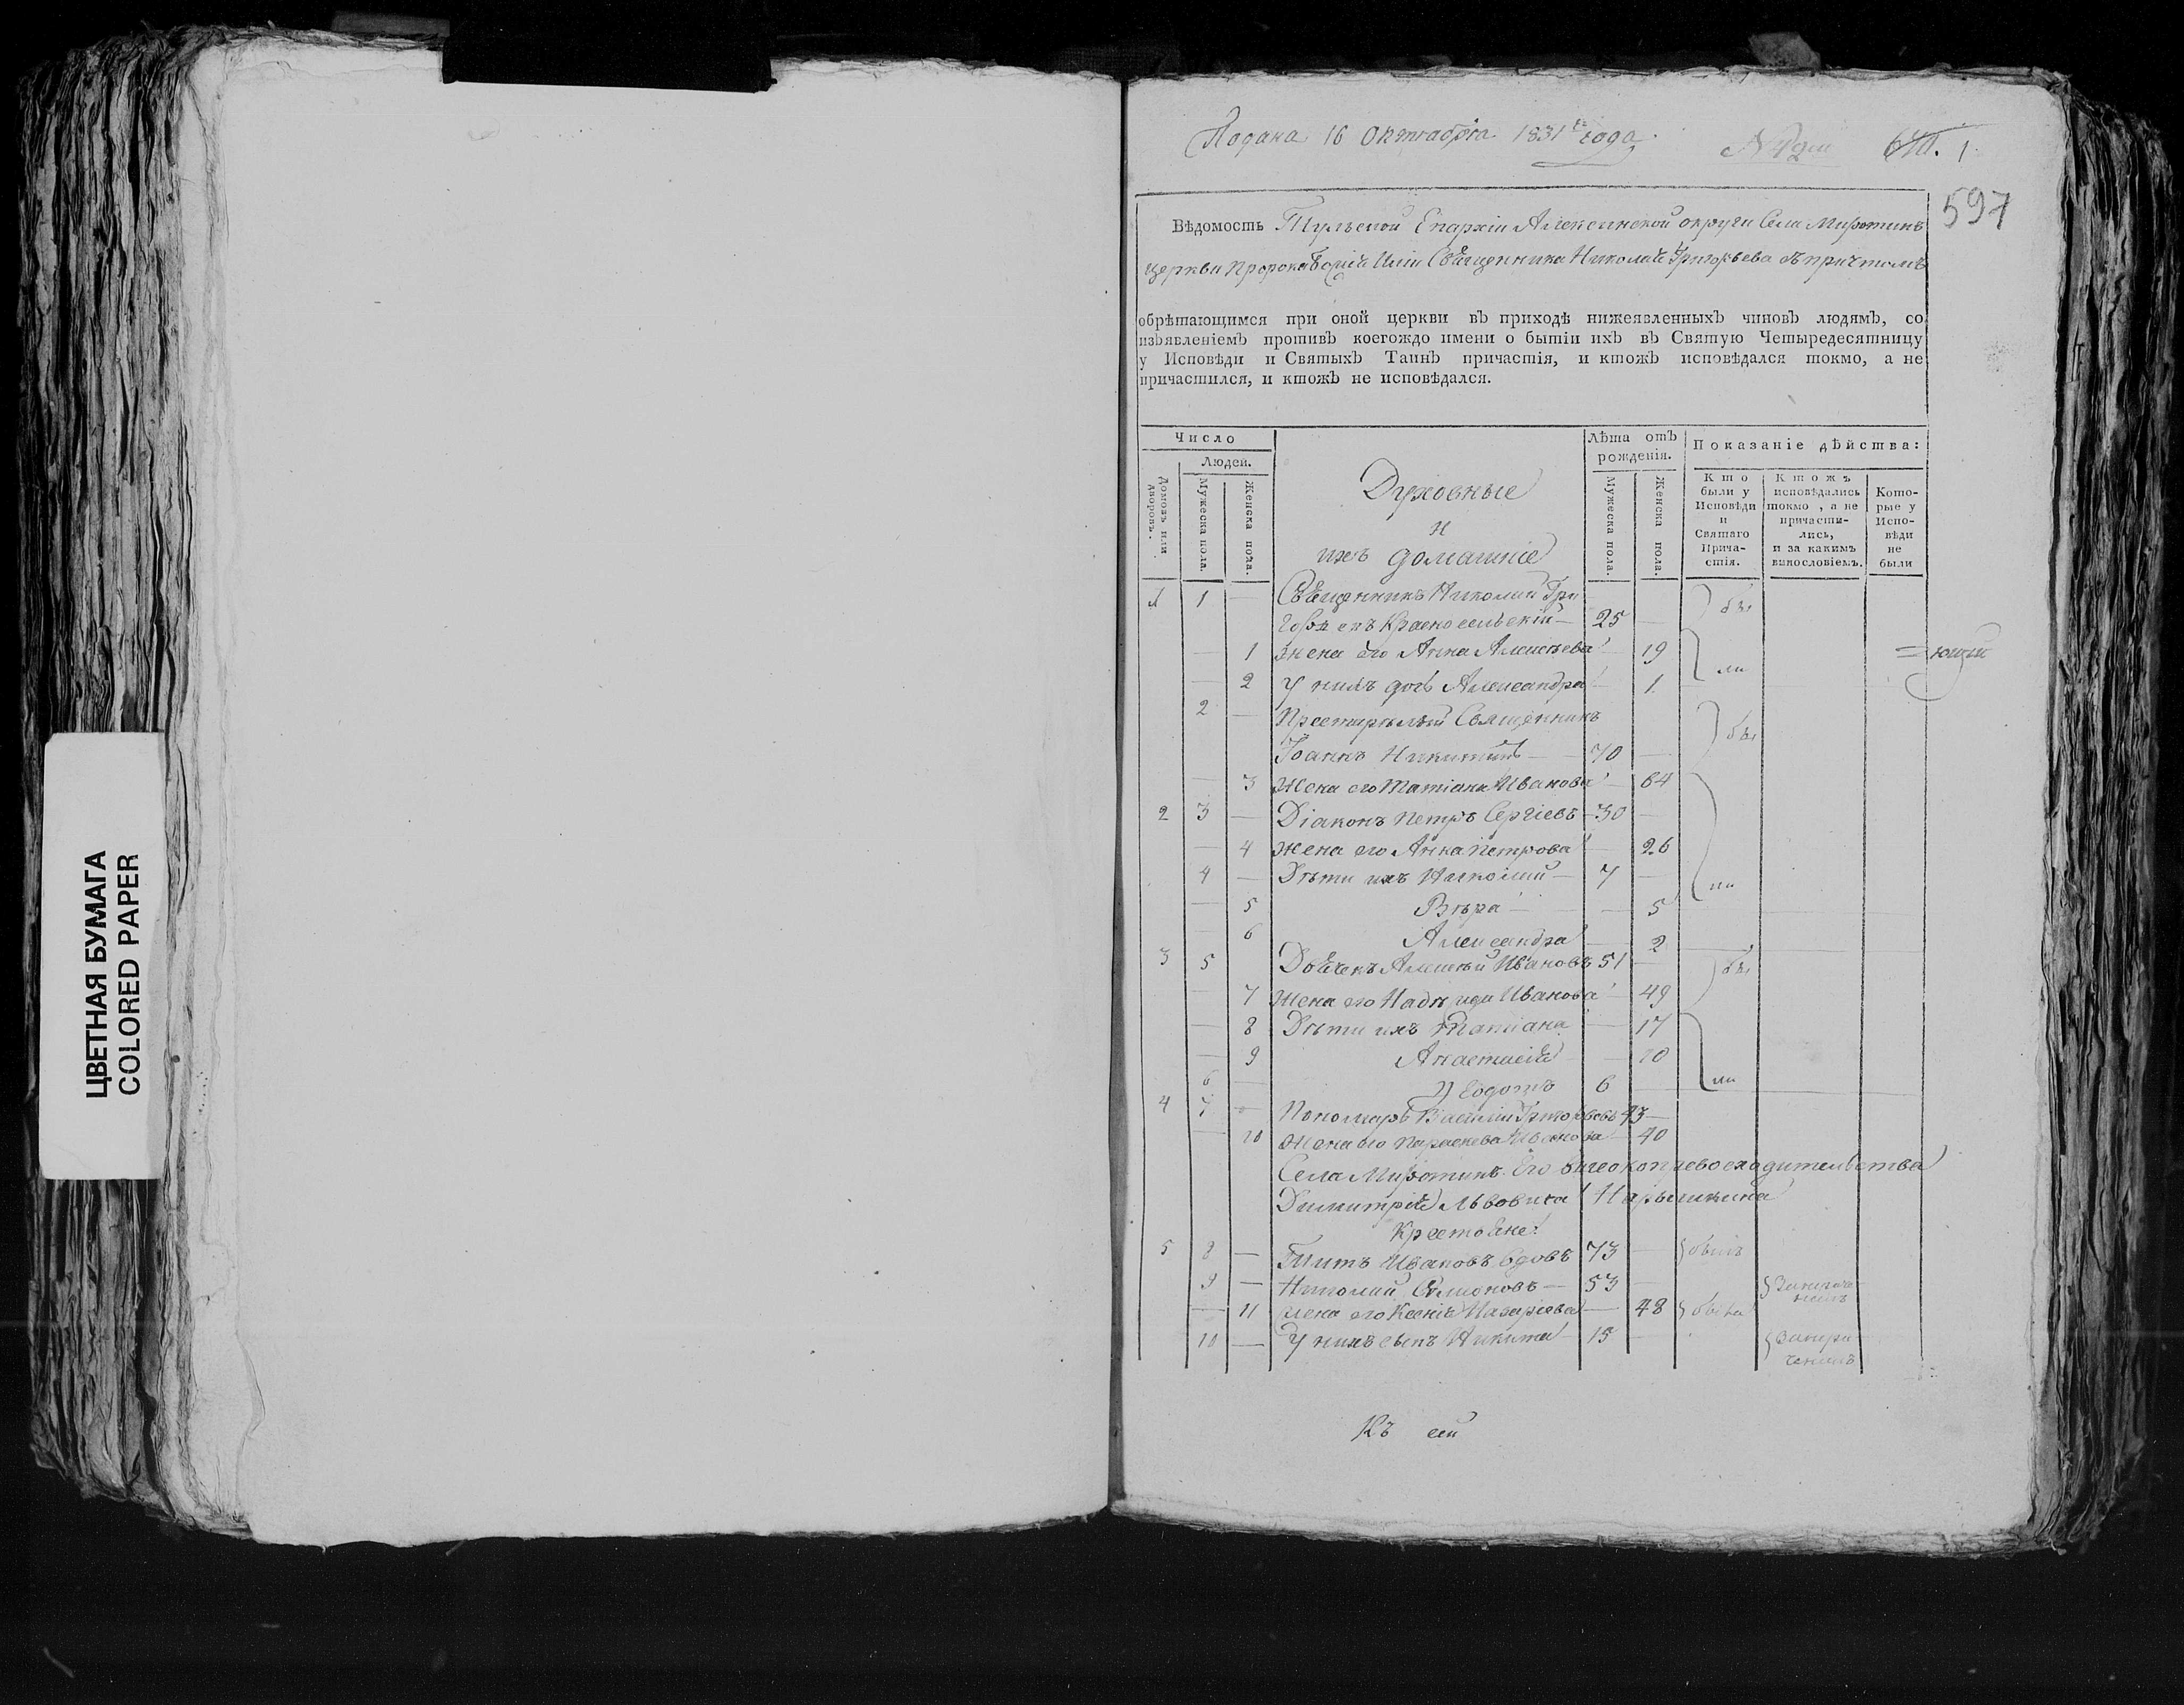 ЦВЕТНАЯ БУМАГА
COLORED PAPER
Подана 16 Октября 1831 года.
1.
597
Вѣдомость Тульской Епархіи Алексинской округи Села Миротинъ
церкви Пророка Божія Иліи Священника Николая Григорьева съ причтомъ
обрѣтающимся при оной церкви въ приходѣ нижеявленныхъ чиновъ людямъ, со
изъявленіемъ противъ коегождо имени о бытіи ихъ въ Святую Четыредесятницу
у Исповѣди и Святыхъ Таинъ причастія, и ктожъ исповѣдался токмо, а не
причастился, и ктожъ не исповѣдался.
Число
Людей.
Домовъ или дворовъ.
Мужеска пола.
Женска пола.
Духовные
и
ихъ домашніе
Лѣта отъ рожденія.
Мужеска пола.
Женска пола.
Показаніе дѣйства:
Кто были у Исповѣди и Святаго Причастія.
Ктожъ исповѣдались токмо, а не причастились, и за какимъ винословіемъ.
Которые у Исповѣди не были
1 1 — Священникъ Николай Гри
горьевъ Красносельскій — 25 — бы
— 1 жена его Анна Алексѣева — 19
— 2 У нихъ дочь Александра — 1 ли
=ющій
2 — Престарѣлый Священникъ
Іоаннъ Никитинъ — 70 — бы
— 3 Жена его Татіана Иванова — 64
2 3 — Діаконъ Петръ Сергіевъ — 30 —
— 4 жена его Анна Петрова — 26
4 — Дѣти ихъ Николай — 7 — ли
— 5 Вѣра — — 5
— 6 Александра — 2
3 5 Дьячекъ Алексѣй Ивановъ 51 — бы
— 7 Жена его Надежда Иванова — 49
— 8 Дѣти ихъ Татіана — 17
— 9 Анастасія — 10
6 — Ѳедотъ 6 — ли
4 7 — Пономарь Василій Григорьевъ 43 —
— 10 Жена его Параскева Иванова — 40
Села Миротинъ Его Высокопревосходительства
Димитрія Львовича Нарышкина
Крестьяне:
5 8 — Титъ Ивановъ вдовъ 73 — былъ
9 — Николай Симоновъ — 53 —
— 11 Жена его Ксенія Назаріева — 48 была
10 — У нихъ сынъ Никита — 15 —
Къ сей